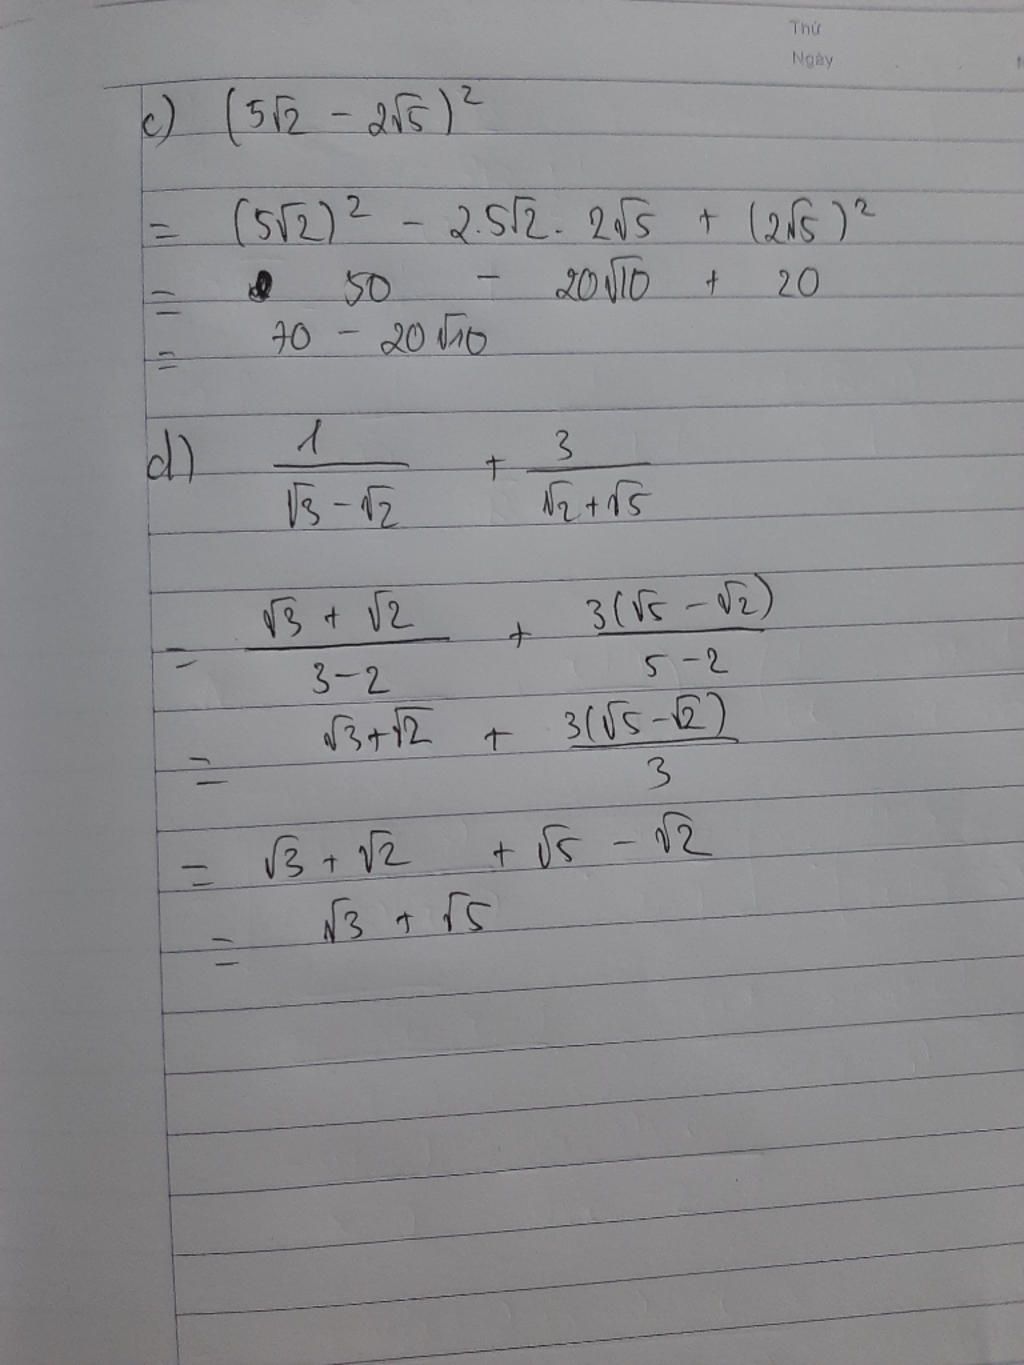 Thứ
Ngày
c) (5√2 - 2√5)²
= (5√2)² - 2.5√2. 2√5 + (2√5)²
= 50 - 20√10 + 20
= 70 - 20√10
d) 1/(√3 - √2) + 3/(√2 + √5)
= (√3 + √2)/(3 - 2) + 3(√5 - √2)/(5 - 2)
= √3 + √2 + 3(√5 - √2)/3
= √3 + √2 + √5 - √2
= √3 + √5